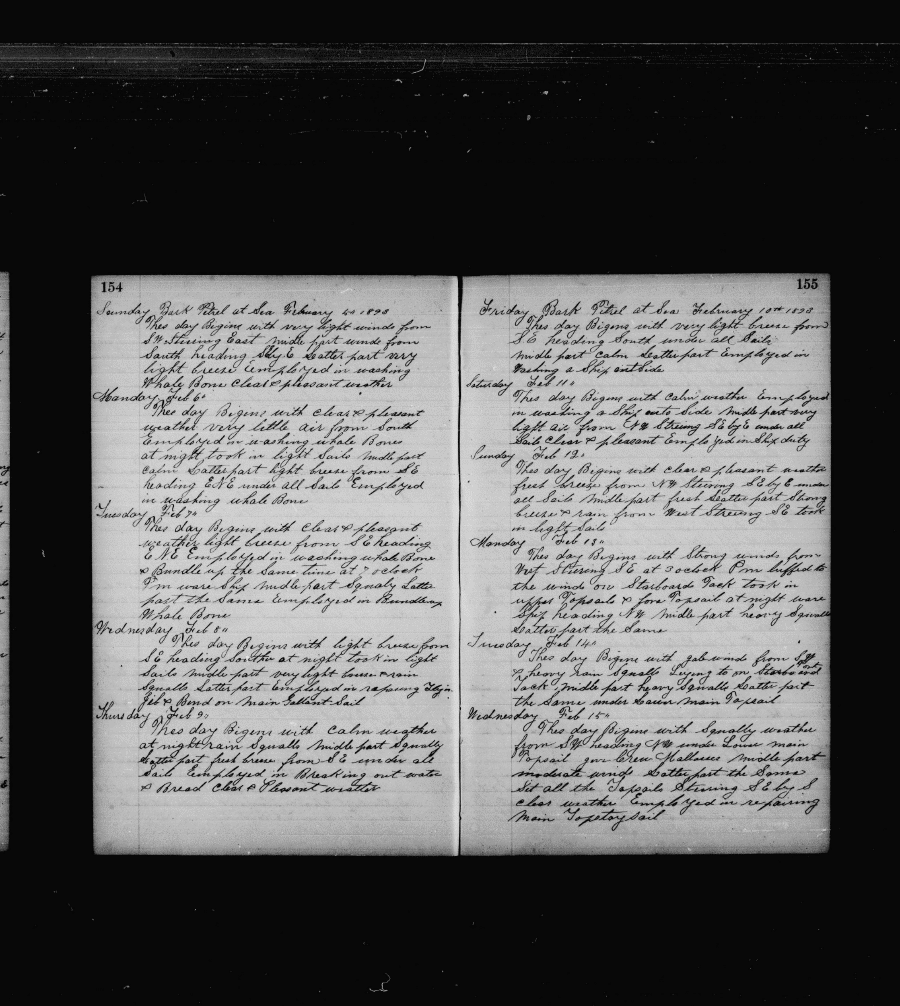 154
Sunday Bark Petrel at Sea February 5th 1893
Thes day Begins with very light winds from
SW Steering East Midle part winds from
South heading Latter part very
light breeze Employed in washing
Whale Bone Clear & pleasant weather
Monday Feb 6"
Thes day Begins with Clear & pleasant
weather very little air from South
Employed in washing whale Bones
at night took in light Sails Midle part
Calm Latter part light breeze from SE
heading ENE under all Sails Employed
in washing whale Bone
Tuesday Feb 7"
Thes day Begins with Clear & pleasant
weather light breeze from SE heading
ENE Employed in washing whale Bone
& Bundle up the Same time at 7 oclock
Pm ware Ship Midle part Squaly Latter
part the Same Employed in Bundle up
Whale Bone
Wednesday Feb 8"
Thes day Begins with light breeze from
SE heading at night took in light
Sails Midle part very light & rain
Squalls Latter part Employed in
Jib & Bend on Main Gallent Sail
Thursday Feb 9"
Thes day Bigens with Calm weather
at night rain Squalls Midle part Squally
Latter part fresh breeze from SE under all
Sails Employed in Breaking out water
& Bread Clear & Plesent weather
155
Friday Bark Petrel at Sea February 10th 1893
Thes day Bigens with very light breese from
SE heading South under all Sails
Midle part Calm Latter part Employed in
Washing a Ship out Side
Saturday Feb 11"
Thes day Begins with Calm weather Employed
in washing a Ship Side Midle part very
light air from NW Streeing SE by E under all
Sails Clear & pleasant Employed in Ship duty
Sunday Feb 12"
Thes day Begins with Clear & pleasant weather
fresh breeze from NW Steering SE by E under
all Sails Midle part fresh Latter part Strong
breeze & rain from West Streeing SE took
in light Sails
Monday Feb 13"
Thes day Begins with Strong winds from
West Steering SE at 3 oclock Pm luffed to
the wind on Starboard Tack took in
upper Topsails & fore Topsail at night ware
Ship heading NW Midle part heavy Squalls
Latter part the Same
Tuesday Feb 14"
Thes day Bigins with gale winds from SW
& heavy rain Squalls Lying to on Starboard
Tack Midle part heavy Squalls Latter part
the Same under Lower Main Topsail
Wednesday Feb 15"
Thes day Bigens with Squally weather
from SW heading NW under Lower main
Topsail Crew Midle part
moderate winds Latter part the Same
Set all the Topsails Steering SE by S
Clear weather Employed in repairing
Main Sail